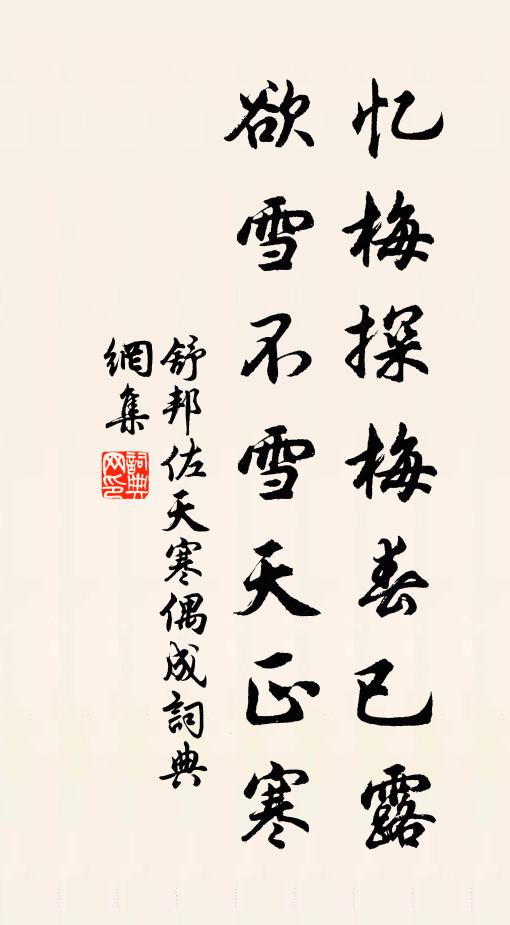 忆梅探梅春已露
欲雪不雪天正寒
舒邦佐天寒偶成詞典
網集
詞典
网印